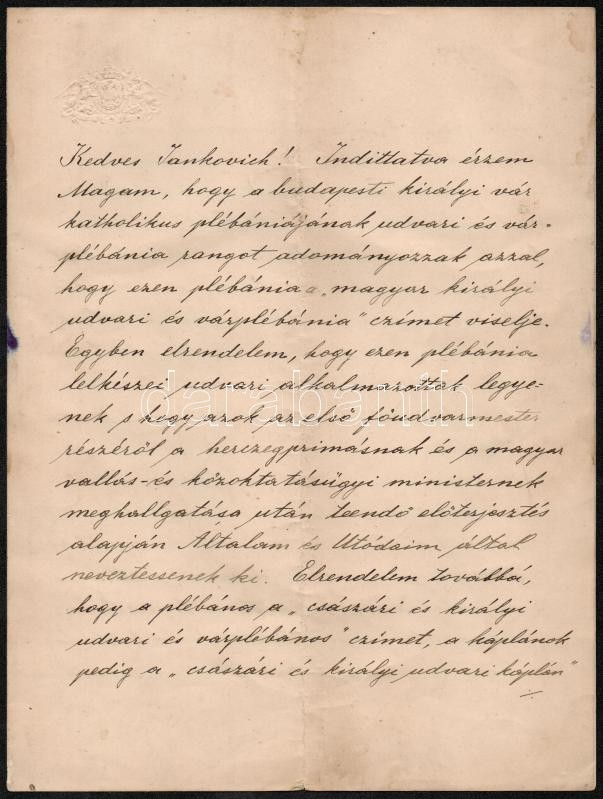 Kedves Jankovich! Indíttatva érzem
Magam, hogy a budapesti királyi vár
katholikus plébániájának udvari és vár-
plébánia rangot adományozzak azzal,
hogy ezen plébánia a „magyar királyi
udvari és várplébánia" czímet viselje.
Egyben elrendelem, hogy ezen plébánia
lelkészei udvari alkalmazottak legye-
nek s hogy azok az első főudvarmester
részéről a herczegprimásnak és a magyar
vallás-és közoktatásügyi ministernek
meghallgatása után teendő előterjesztés
alapján Általam és Utódaim által
neveztessenek ki. Elrendelem továbbá,
hogy a plébános a „császári és királyi
udvari és várplébános" czímet, a káplánok
pedig a „császári és királyi udvari káplán"
darabanth